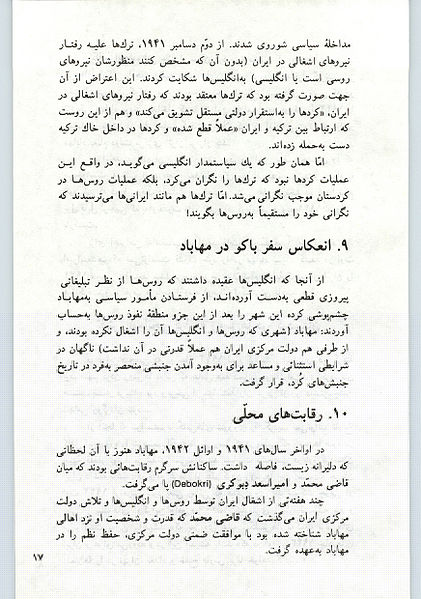 مداخلهٔ سیاسی شوروی شدند. از دوّم دسامبر ۱۹۴۱، ترك‌ها علیـه رفتـار
نیروهای اشغالی در ایران (بدون آن که مشخص کنند منظورشان نیروهای
روسی است یا انگلیسی) به‌انگلیس‌ها شکایت کردند. این اعتراض از آن
جهت صورت گرفته بود که ترك‌ها معتقد بودند که رفتار نیروهای اشغالی در
ایران، «کردها را به‌استقرار دولتی مستقل تشویق می‌کند» و هم از این روست
که ارتباط بین ترکیه و ایران «عملاً قطع شده» و کردها در داخل خاك ترکیه
دست به‌حمله زده‌اند.
امّا همان طور که یك سیاستمدار انگلیسی می‌گویـد، در واقـع ایـن
عملیات کردها نبود که ترك‌ها را نگران می‌کرد، بلکه عملیات روس‌هـا در
کردستان موجب نگرانی می‌شد. امّا ترك‌ها هم مانند ایرانی‌ها می‌ترسیدند که
نگرانی خود را مستقیماً به‌روس‌ها بگویند!
۹. انعکاس سفر باکو در مهاباد
از آنجا که انگلیس‌ها عقیده داشتند که روس‌هـا از نظـر تبلیغاتی
پیروزی قطعی به‌دسـت آورده‌انـد، از فرستـادن مأمـور سیاسـی به‌مهابـاد
چشم‌پوشی کرده این شهر را بعد از این جزو منطقهٔ نفوذ روس‌ها به‌حساب
آوردند: مهاباد (شهری که روس‌ها و انگلیس‌ها آن را اشغال نکرده بودند، و
از طرفی هم دولت مرکزی ایران هم عملاً قدرتی در آن نداشت) ناگهان در
شرایطی استثنائی و مساعد برای به‌وجود آمدن جنبشی منحصر به‌فرد در تاریخ
جنبش‌های کُرد، قرار گرفت.
۱۰. رقابت‌های محلّی
در اواخر سال‌های ۱۹۴۱ و اوائل ۱۹۴۲، مهاباد هنوز با آن لحظاتی
که دلیرانه زیست، فاصله داشت. ساکنانش سرگرم رقابت‌هائی بودند که میان
قاضی محمّد و امیراسعد دِبوکری (Debokri) پا می‌گرفت.
چند هفته‌ئی از اشغال ایران توسط روس‌ها و انگلیس‌ها و تلاش دولت
مرکزی ایران می‌گذشت که قاضی محمّد که قدرت و شخصیت او نزد اهالی
مهاباد شناخته شده بود با موافقت ضمنی دولت مرکزی، حفظ نظم را در
مهاباد به‌عهده گرفت.
۱۷